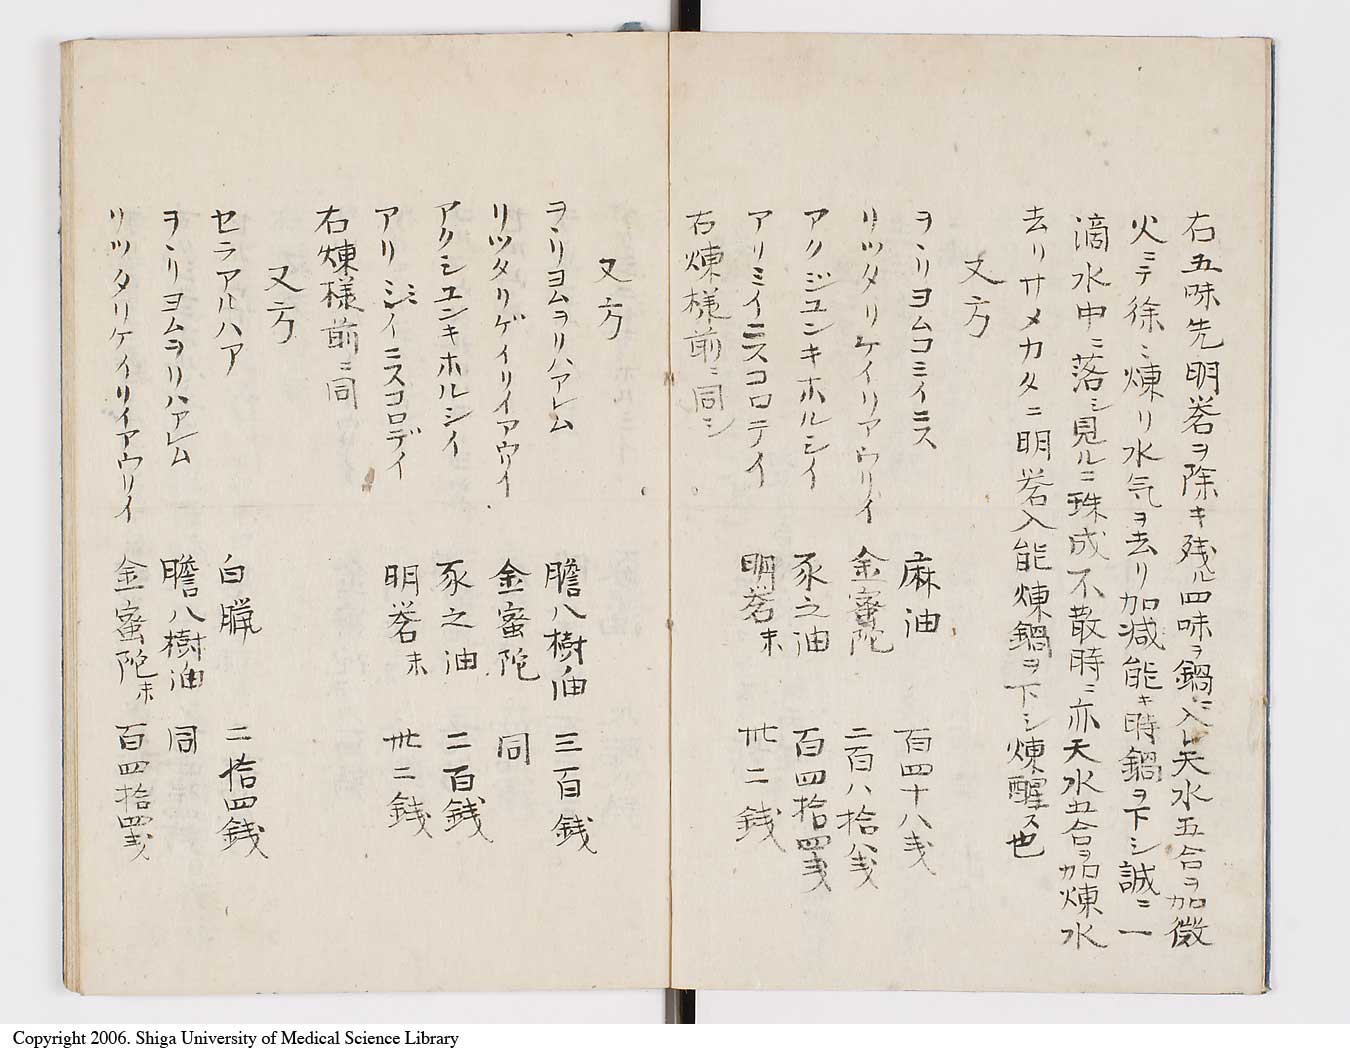 右五味先明礬ヲ除キ残ル四味ヲ鍋ニ入レ天水五合ヲ加微
火ニテ徐ニ煉リ水気ヲ去リ加減能キ時鍋ヲ下シ誠ニ一
滴水中ニ落シ見ルニ珠成不散時ニ亦天水五合ヲ加煉水
去リサメカタニ明礬入能煉鍋ヲ下シ煉醒ス也
又方
ヲヽリヨムコミイニス 麻油 百四十八戔
リツタリケイリアウリイ 金蜜陀 二百八拾八戔
アクジユンキホルシイ 豕之油 百四拾四戔
アリミイニスコロテイ 明礬末 卅二銭
右煉様前ニ同シ
又方
ヲヽリヨムヲリハアレム 膽八樹油 三百銭
リツタリゲイリイアウリイ 金蜜陀 同
アクシユンキホルシイ 豕之油 二百銭
アリミシイニスコロデイ 明礬末 卅二銭
右煉様前ニ同
又方
セラアルハア 白臘 二拾四銭
ヲヽリヨムヲリハアレム 膽八樹油 同
リツタリケイリイアウリイ 金蜜陀末 百四拾四戔
Copyright 2006. Shiga University of Medical Science Library